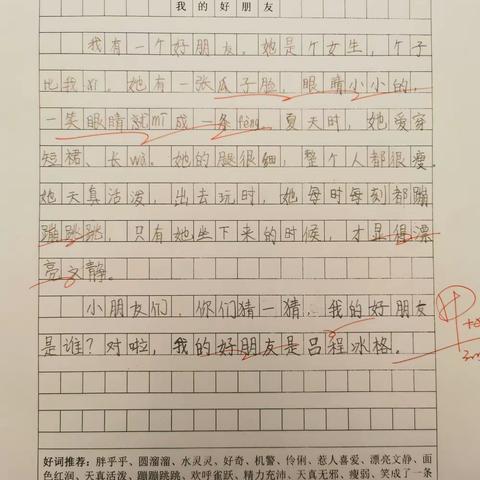 我的好朋友
我有一个好朋友。她是个女生,个子
比我ǎi。她有一张瓜子脸,眼睛小小的,
一笑眼睛就mī成一条fèng。夏天时,她爱穿
短裙、长wà。她的腿很细,整个人都很瘦。
她天真活泼,出去玩时,她每时每刻都蹦
蹦跳跳,只有她坐下来的时候,才显得漂
亮文静。
小朋友们,你们猜一猜,我的好朋友
是谁?对啦,我的好朋友是吕程冰格。
好词推荐:胖乎乎、圆溜溜、水灵灵、好奇、机警、伶俐、惹人喜爱、漂亮文静、面
色红润、天真活泼、蹦蹦跳跳、欢呼雀跃、精力充沛、天真无邪、瘦弱、笑成了一条